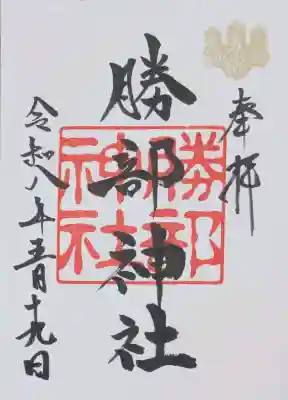 奉拝
勝部神社
勝部神社
令和八年五月十九日